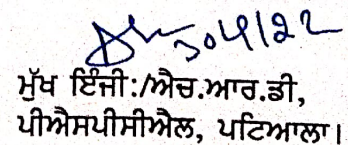 30/4/22
ਮੁੱਖ ਇੰਜੀ:/ਐਚ.ਆਰ.ਡੀ,
ਪੀਐਸਪੀਸੀਐਲ, ਪਟਿਆਲਾ।